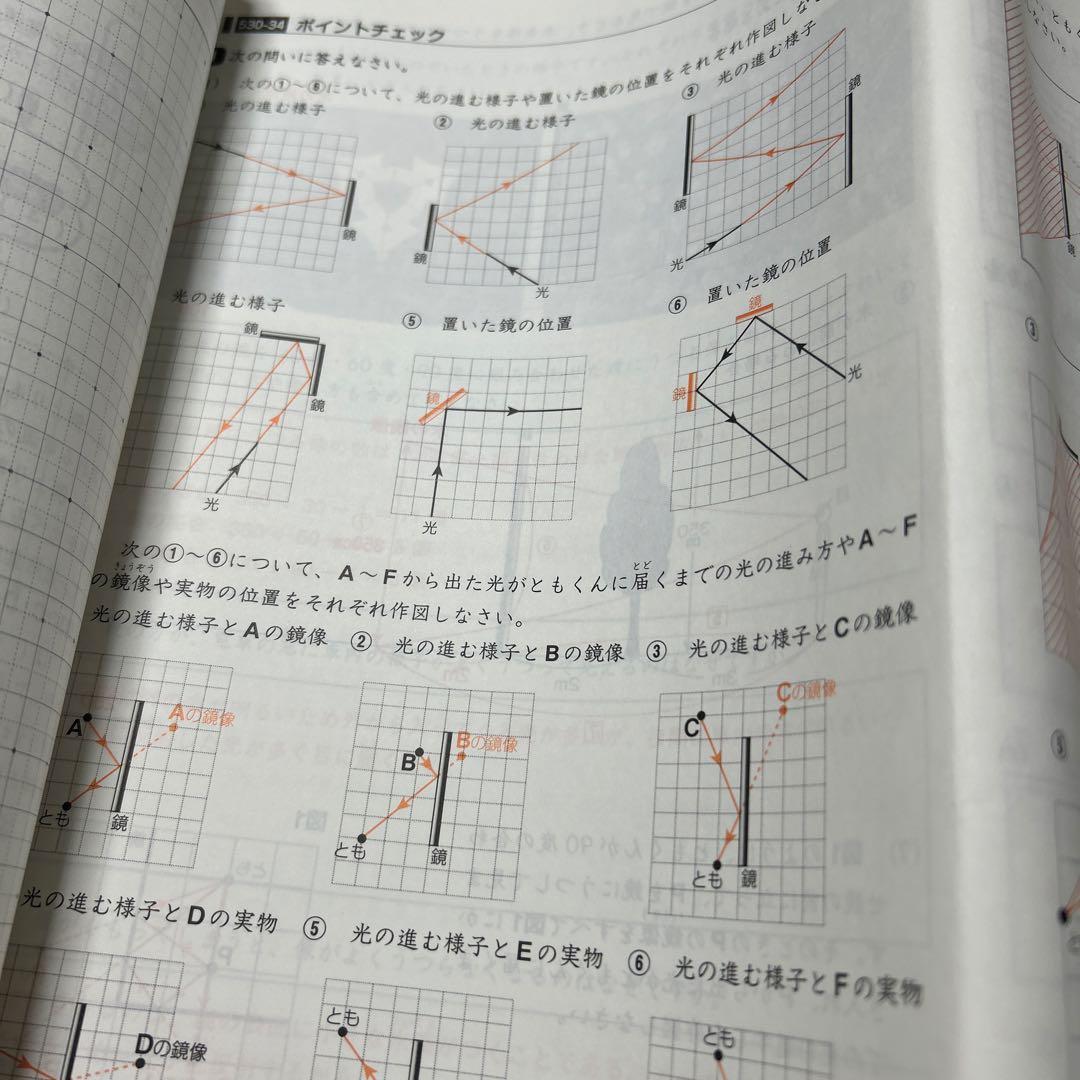 530-34 ポイントチェック
次の問いに答えなさい。
次の①〜⑥について、光の進む様子や置いた鏡の位置をそれぞれ作図しなさ
光の進む様子
② 光の進む様子
③ 光の進む様子
鏡
鏡
光
鏡
鏡
光
光の進む様子
⑤ 置いた鏡の位置
⑥ 置いた鏡の位置
鏡
鏡
光
鏡
光
鏡
鏡
光
次の①〜⑥について、A〜Fから出た光がともくんに届くまでの光の進み方やA〜F
きょうぞう
とど
の鏡像や実物の位置をそれぞれ作図しなさい。
光の進む様子とAの鏡像
② 光の進む様子とBの鏡像
③ 光の進む様子とCの鏡像
A
Aの鏡像
とも
鏡
B
Bの鏡像
とも
鏡
C
Cの鏡像
とも
鏡
光の進む様子とDの実物
⑤ 光の進む様子とEの実物
⑥ 光の進む様子とFの実物
Dの鏡像
とも
とも